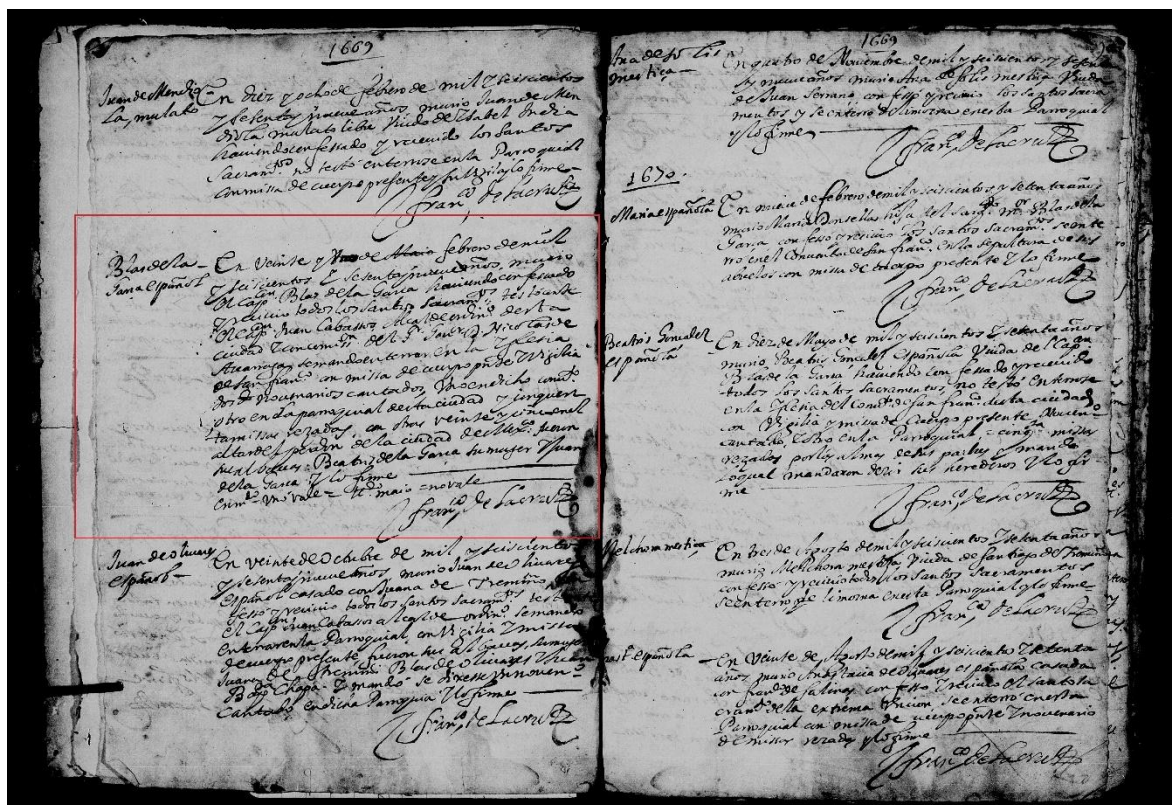 1669
Juan de Mendio
la, mulato
En diez y ocho de febrero de mil y seiscientos
y sesenta y nueve años murio Juan de Men
diola mulato libre Viudo de Isabel India
haviendo confessado y recevido los santos
Sacram.tos no testó enterrose en la Parroquial
con missa de cuerpo presente y su Vigilia y lo firme
fran.co de la Cruz
Blas de la
Garza español
En veinte y Uno de Maio febrero de mil
y seiscientos y sesenta y nueve años, murio
el Cap.n Blas de la Garza haviendo confessado
y recivio todos los Santos Sacram.tos testó ante
el Cap.n Juan Cabassos Alcalde ordin.o desta
ciudad
Azcarraga se mando enterrar en la Yglesia
de San fran.co con missa de cuerpo pn.te Vigilia
dos Novenarios cantados, Uno en dicho conv.to
otro en la parroquial desta ciudad y cinquen
ta missas rezadas, con otras veinte y cinco en el
altar del perdon de la ciudad de Mex.co fueron
sus albaceas Beatriz de la Garza su muger y Juan
de la Garza y lo firme
enm.do Uno vale = maio = no vale
fran.co de la Cruz
Juan de olivares
español
En veinte de Octubre de mil y seiscientos
y sesenta y nueve años, murio Juan de olivares
español casado con Juana de Treviño
y recivio todos los santos sacram.tos testó
el Cap.n Juan Cabassos alcalde ordin.o se mando
enterrar en la Parroquial, con Vigilia y missa
de cuerpo presente fueron sus albaceas, su muger
Juana de Treviño Blas de olivares y
Bar.me Chapa y mando se dixesse Un noven.o
Cantado en dicha Parroquia y lo firme
fran.co de la Cruz
1669
Ana de solis
mestiça
En quatro de Noviembre de mil y seiscientos y sesenta
y nueve años murio Ana de solis mestiça Viuda
de Juan Serrano confessó y recivio los santos sacra
mentos y se enterro de limosna en esta Parroquial
y lo firme
fran.co de la Cruz
1670.
Maria española
En nueve de febrero de mil y seiscientos y setenta años
murio Maria Donsella hija del sarg.to m.or Blas de la
Garza confesso y recivio los santos sacram.tos se ente
rro en el Convento de san fran.co en la sepultura de sus
abuelos con missa de cuerpo presente y lo firme
fran.co de la Cruz
Beatris Gonsales
española
En diez de Mayo de mil y seiscientos y setenta años
murio Beatris Gonsales española Viuda del Cap.n
Blas de la Garza, haviendo confessado y recevido
todos los santos sacramentos, no testó enterrose
en la Yglesia del Conv.to de san fran.co desta ciudad
con Vigilia y missa de cuerpo presente Noven.o
cantado, y otro en la Parroquial, cinq.ta missas
rezadas por las almas de sus padres y marido
loqual mandaron dezir sus herederos y lo fir
me
fran.co de la Cruz
Melchora mestiça
En tres de Agosto de mil y seiscientos y setenta años
murio Melchora mestissa, Viuda de Santiago
confesso y recivio todos los Santos Sacramentos
se enterro de limosna en esta Parroquial y lo firme
fran.co de la Cruz
española
En Veinte de Agosto de mil y seiscientos y setenta
años, murio Anastacia de Olivares española casada
con fran.co de salinas, confesso y recivio el santo sa
cram.to de la extrema Uncion, se enterro en esta
Parroquial con missa de cuerpo pn.te y novenario
de missas rezadas y lo firme
fran.co de la Cruz